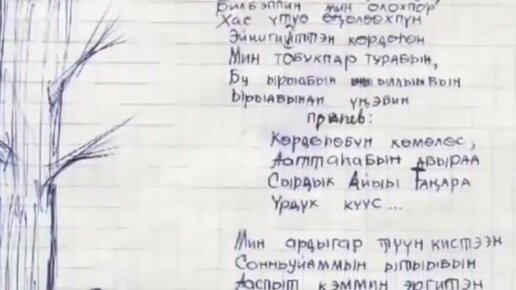 Билбэппин мин олохпор
Хас үтүө оҥолоохпун
Эйигиттэн көрдөһөн
Мин тобукпар турабын,
Бу ырыабын ыллыыбын
Ырыабынан үҥэбин
Припев:
Көрдөһөбүн көмөлөс,
Ааттаһабын абыраа
Сырдык Айыы Таҥара
Үрдүк күүс...
Мин ардыгар түүн кистээн
Сонньуйаммын ытыыбын
Ааспыт кэммин эргитэн